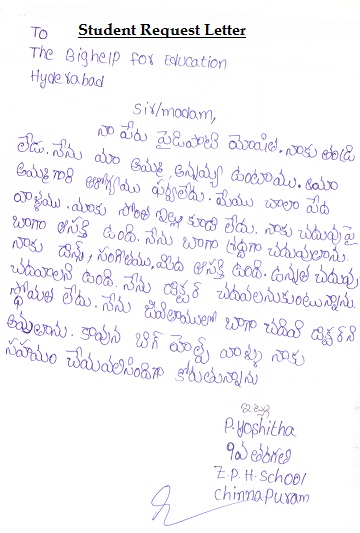 Student Request Letter
TO
The Bighelp for Education
Hyderabad
Sir/madam,
నా పేరు పైడిపాటి మోషిత. నాకు తండ్రి
లేడు. నేను మా అమ్మ, అన్నయ్య ఉంటాము. మా
అమ్మగారి ఆరోగ్యము ఫర్వలేదు. మేము చాలా పేద
వాళ్ళము. మాకు సొంత ఇల్లు కూడా లేదు. నాకు చదువుపై
బాగా ఆసక్తి ఉంది. నేను బాగా శ్రద్ధగా చదువుతాను.
నాకు డాన్స్, సంగీతము, మీద ఆసక్తి ఉంది. ఉన్నత చదువు
చదవాలని ఉంది. నేను డాక్టర్ చదవలనుకుంటున్నాను.
స్థోమత లేదు. నేను బాగా చదివి డాక్టర్‌ని
అవ్వలాను. కావున బిగ్ హెల్ప్ వాళ్ళు నాకు
సహాయం చేయవలసిందిగా కోరుతున్నాను
ఇట్లు
P. Yoshitha
9వ తరగతి
Z.P.H. School
Chinnapuram